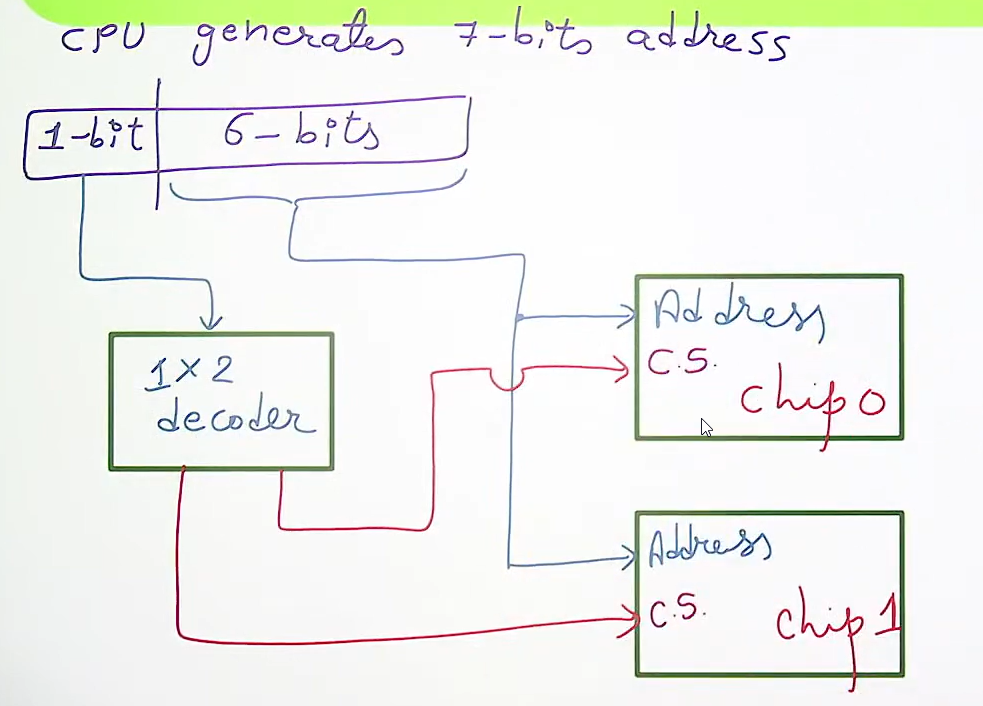 CPU generates 7-bits address
1-bit 6-bits
1×2
decoder
Address
C.S.
chip 0
Address
C.S.
chip 1